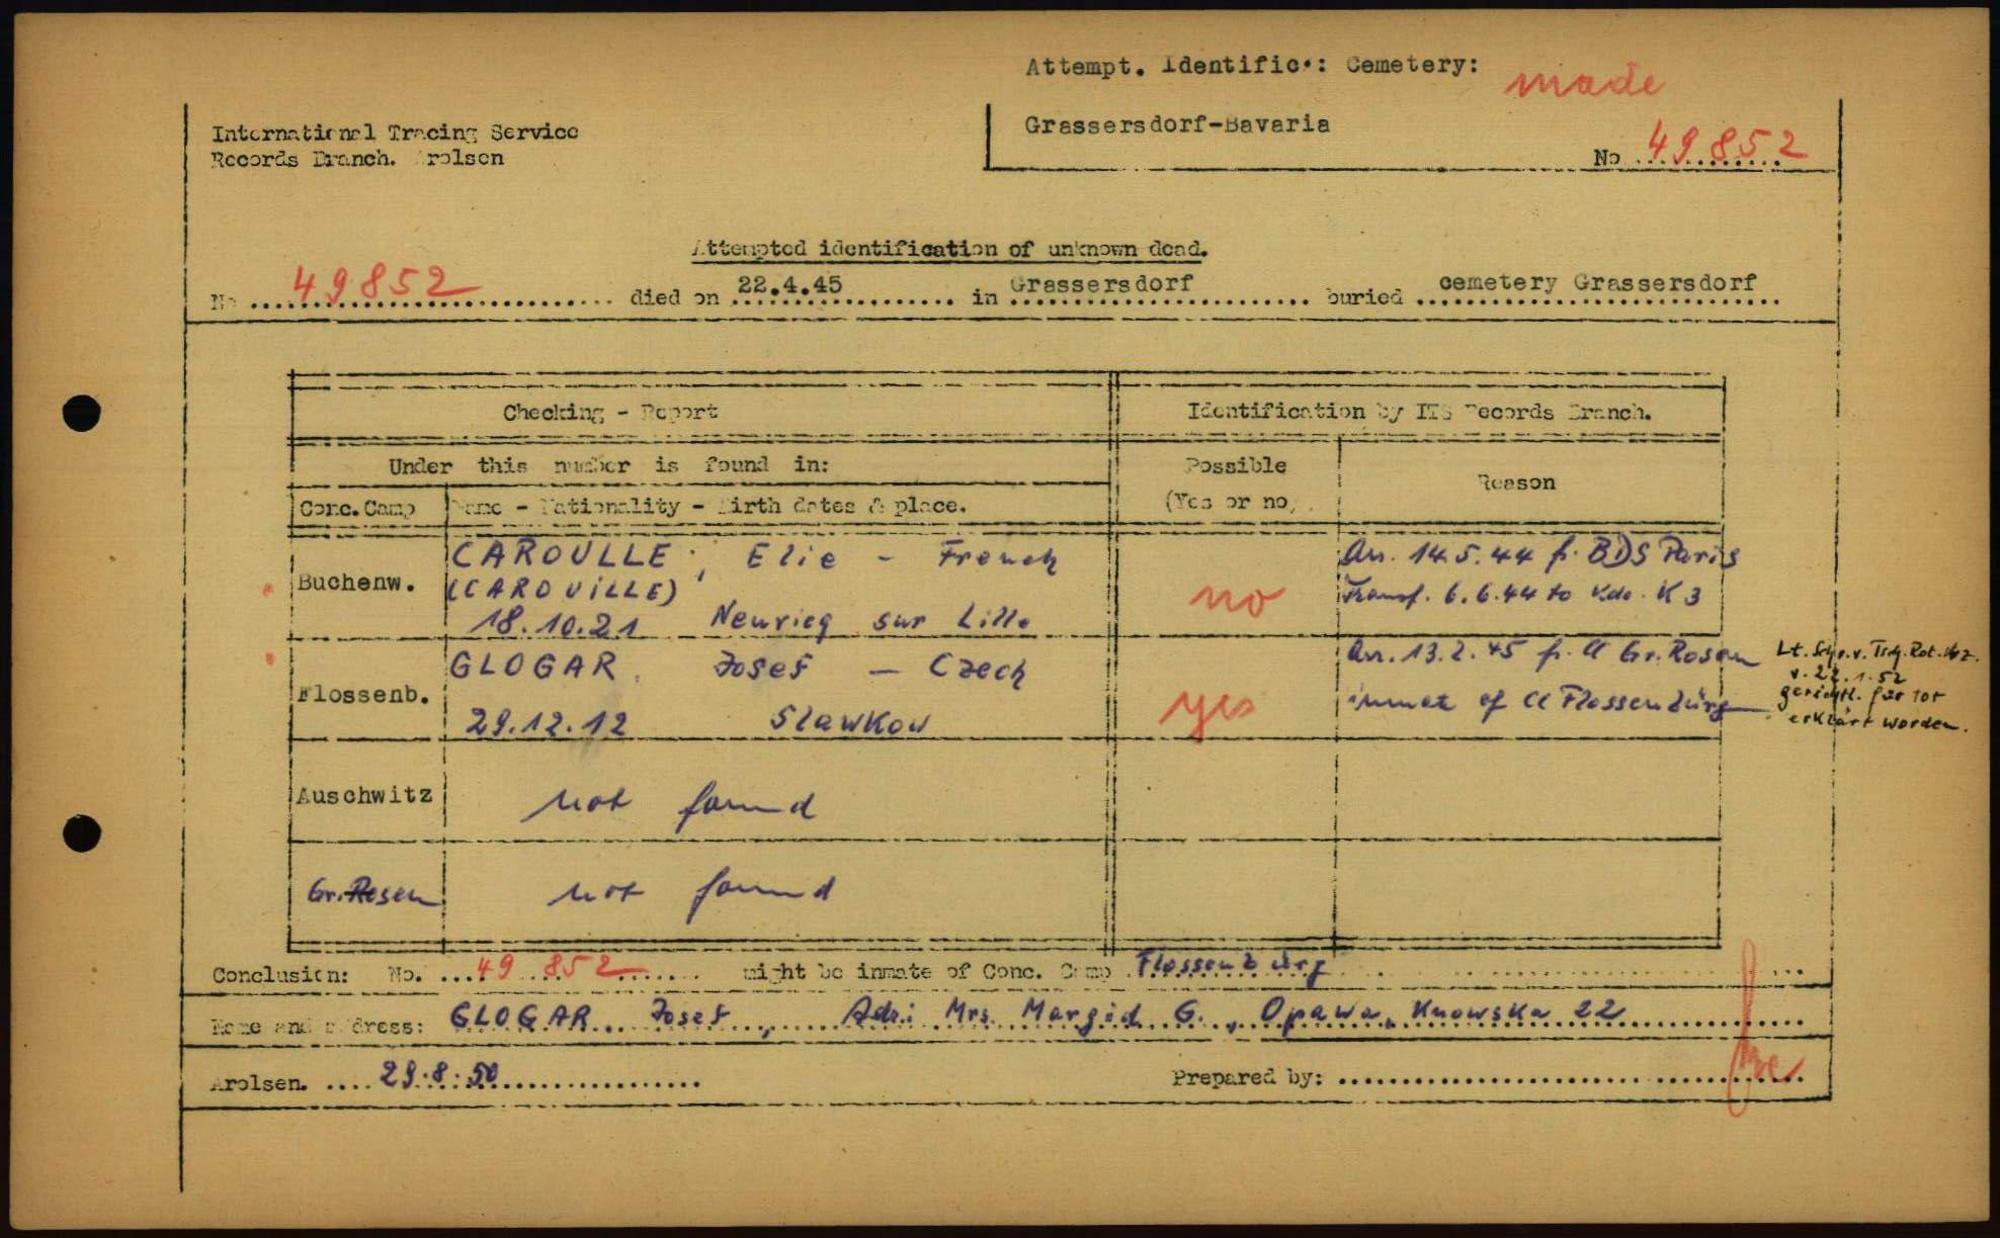 Attempt. Identific.: Cemetery:
made
Grassersdorf-Bavaria
No 49852
International Tracing Service
Records Branch. Arolsen
Attempted identification of unknown dead.
No 49852 died on 22.4.45 in Grassersdorf buried cemetery Grassersdorf
Checking - Report
Identification by ITS Records Branch.
Under this number is found in:
Possible
(Yes or no)
Reason
Conc.Camp
Name - Nationality - Birth dates & place.
Buchenw.
CAROULLE, Elie - French
(CAROUILLE)
18.10.21 Neuvieg sur Lille
no
Arr. 14.5.44 fr. BDS Paris
Transf. 6.6.44 to Kdo. K 3
Flossenb.
GLOGAR, Josef - Czech
29.12.12 Slawkow
yes
Arr. 13.2.45 fr. Cl Gr. Rosen
inmat of Cl Flossenbürg
Lt. Schr. v. Tsch. Rot. Krz.
v. 22.1.52
gerichtl. für tot
erklärt worden.
Auschwitz
not found
Gr. Rosen
not found
Conclusion: No. 49 852 might be inmate of Conc. Camp Flossenbürg
Name and address: GLOGAR Josef, Adr.: Mrs. Margid G., Opawa, Knowska 22
Arolsen. 29.8.50
Prepared by: